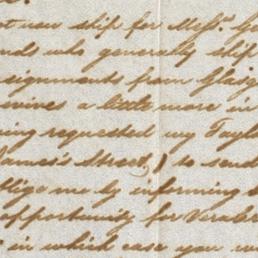 new ship for Mess.rs
who generally ship
signments from
wines a little more in
ing requested my
James's Street,) to send
lige me by informing
opportunity for
in which case you